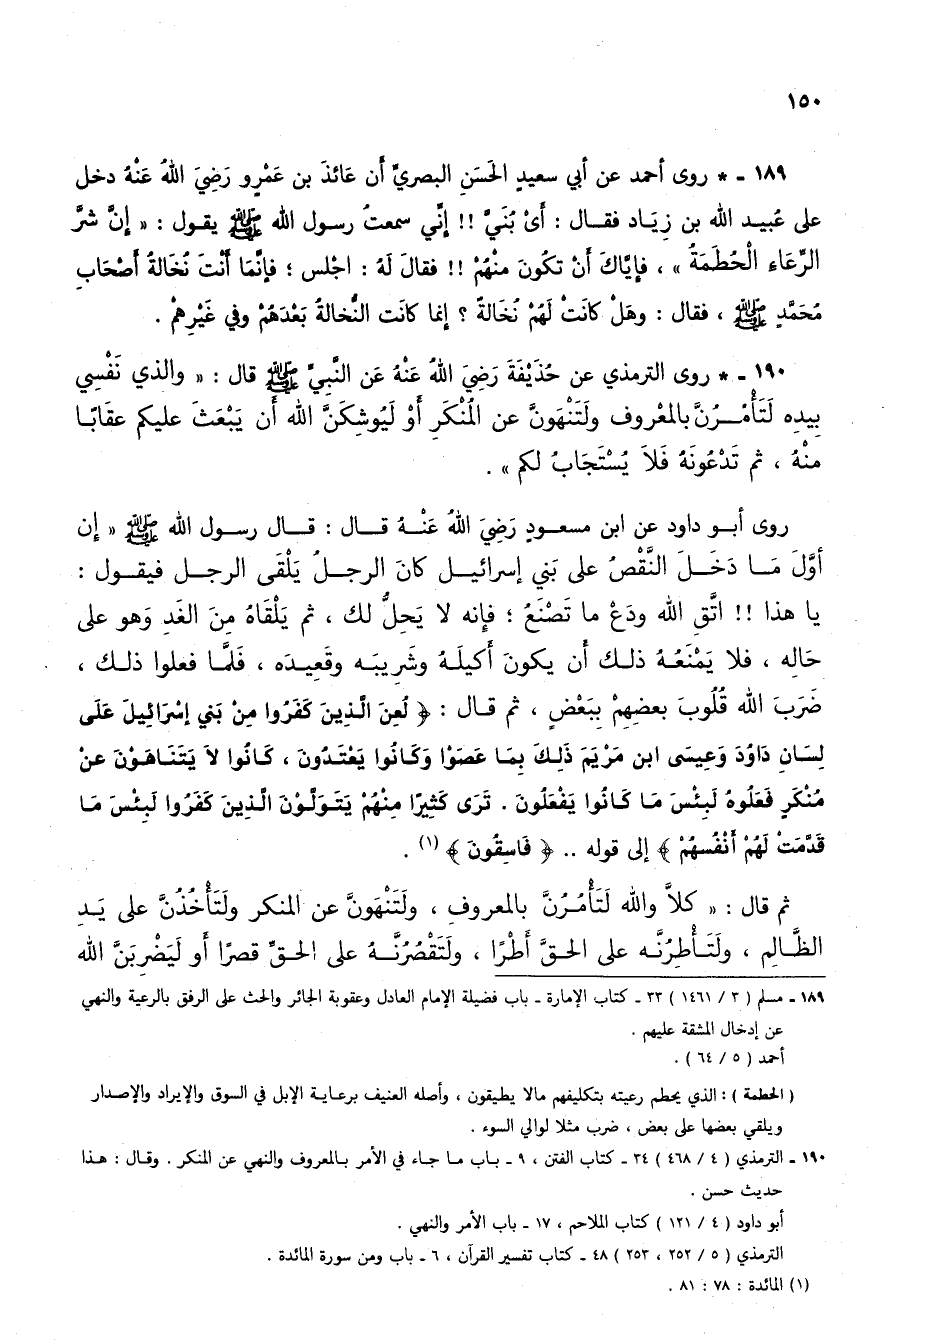 ١٥٠
١٨٩ - * روى أحمد عن أبي سعيدٍ الحَسَنِ البصريِّ أن عَائذَ بن عَمْرٍو رَضِيَ اللهُ عَنْهُ دخل
على عُبيد الله بن زِيَاد فقال : أىْ بُنَيَّ !! إنِّي سمعتُ رسول الله ﷺ يقول : « إنَّ شرَّ
الرِّعَاء الْحُطَمَةُ » ، فإيَّاكَ أنْ تكُونَ منْهُمْ !! فقالَ لَهُ : اجْلس ؛ فإنَّمَا أنْتَ نُخَالةُ أصْحَابِ
مُحَمَّدٍ ﷺ ، فقال : وهَلْ كانَتْ لَهُمْ نُخَالةٌ ؟ إنما كانَت النُّخالةُ بَعْدَهُمْ وفي غَيْرِهمْ .
١٩٠ - * روى الترمذي عن حُذَيْفَةَ رَضِيَ اللهُ عَنْهُ عَن النَّبِيِّ ﷺ قال : « والذي نَفْسِي
بيده لَتَأْمُرُنَّ بالمعْروف ولَتَنْهَونَّ عن المُنْكَرِ أوْ لَيُوشكَنَّ الله أن يَبْعَثَ عليكم عقَابًا
منْهُ ، ثم تَدْعُونَهُ فَلاَ يُسْتَجَابُ لكم » .
روى أبو داود عن ابن مسعودٍ رَضِيَ اللهُ عَنْهُ قال : قال رسول الله ﷺ « إن
أوَّلَ مَا دَخَلَ النَّقْصُ على بَني إسرائيل كانَ الرجلُ يَلْقَى الرجل فيقول :
يا هذا !! اتَّقِ الله ودَعْ ما تَصْنَعُ ؛ فإنه لا يَحِلُّ لك ، ثم يَلْقَاهُ مِنَ الغَدِ وهو على
حاله ، فلا يَمْنَعُهُ ذلك أن يكونَ أكيلَهُ وشَريبَه وقَعيدَه ، فَلمَّا فعلوا ذلك ،
ضَرَبَ الله قُلُوبَ بعضهِمْ ببَعْضٍ ، ثم قال : ﴿ لُعِنَ الَّذِينَ كَفَرُوا مِنْ بَني إسْرائيلَ عَلَى
لِسَانِ دَاوُدَ وَعِيسَى ابن مَرْيَمَ ذَلِكَ بِمَا عَصَوْا وَكَانُوا يَعْتَدُونَ ، كَانُوا لاَ يَتَنَاهَوْنَ عنْ
مُنْكَرٍ فَعَلُوهُ لَبِئْسَ مَا كَانُوا يَفْعَلُونَ . تَرَى كَثِيرًا مِنْهُمْ يَتَوَلَّوْنَ الَّذِينَ كَفَرُوا لَبِئْسَ مَا
قَدَّمَتْ لَهُمْ أَنْفُسُهُمْ ﴾ إلى قوله .. ﴿ فَاسِقُونَ ﴾ (١) .
ثم قال : « كلاَّ والله لَتَأْمُرُنَّ بالمعروف ، ولَتَنْهَونَّ عن المنكر ولَتَأْخُذُنَّ على يَدِ
الظَّالِم ، ولَتَأْطِرُنَّه على الحقِّ أَطْرًا ، ولَتَقْصُرُنَّهُ على الحقِّ قصرًا أو لَيَضْرِبَنَّ الله
١٨٩ - مسلم ( ٣ / ١٤٦١ ) ٣٣ - كتاب الإمارة - باب فضيلة الإمام العادل وعقوبة الجائر والحث على الرفق بالرعية والنهي
عن إدخال المشقة عليهم .
أحمد ( ٥ / ٦٤ ) .
( الحطمة ) : الذي يحطم رعيته بتكليفهم مالا يطيقون ، وأصله العنيف برعاية الإبل في السوق والإيراد والإصدار
ويلقي بعضها على بعض ، ضرب مثلا لوالي السوء .
١٩٠ - الترمذي ( ٤ / ٤٦٨ ) ٣٤ - كتاب الفتن ، ٩ - باب ما جاء في الأمر بالمعروف والنهي عن المنكر . وقال : هذا
حديث حسن .
أبو داود ( ٤ / ١٢١ ) كتاب الملاحم ، ١٧ - باب الأمر والنهي .
الترمذي ( ٥ / ٢٥٢ ، ٢٥٣ ) ٤٨ - كتاب تفسير القرآن ، ٦ - باب ومن سورة المائدة .
(١) المائدة : ٧٨ : ٨١ .